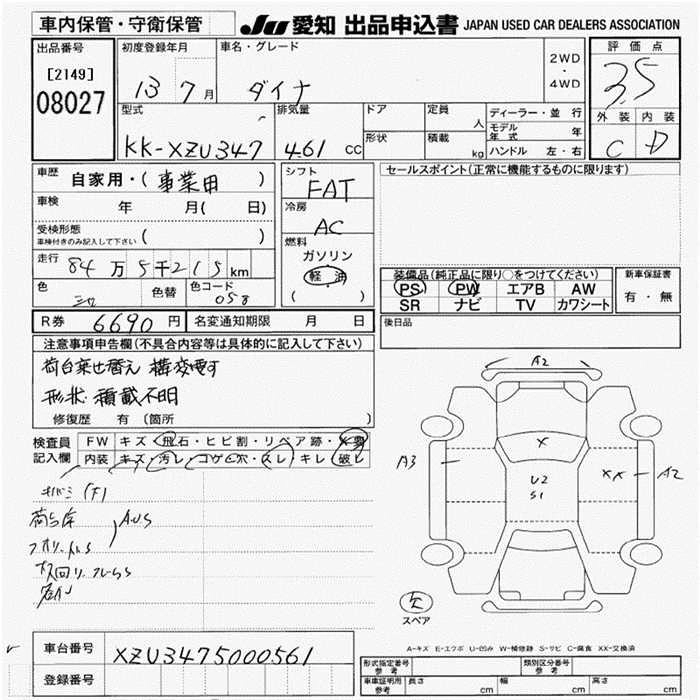 車内保管・守衛保管
JU 愛知 出品申込書 JAPAN USED CAR DEALERS ASSOCIATION
出品番号
[2149]
08027
初度登録年月
13 7月
車名・グレード
ダイナ
2WD
・
4WD
評価点
3.5
外装 内装
C D
型式
KK-XZU347
排気量
461 CC
ドア
形状
定員
人
積載
kg
ディーラー・並行
モデル年式 年
ハンドル 左・右
車歴
自家用・(事業用)
車検 年 月( 日)
受検形態
車検付きのみ記入して下さい ( )
走行 84万5千215km
色 色替 色コード 058
シフト
FAT
冷房
AC
燃料
ガソリン
軽油
( )
セールスポイント(正常に機能するものに限ります)
装備品(純正品に限り○をつけてください)
PS PW エアB AW
SR ナビ TV カワシート
新車保証書
有・無
後日品
R券 6690円 名変通知期限 月 日
注意事項申告欄(不具合内容等は具体的に記入して下さい)
荷台乗せ替え 構変要す
形状・積載不明
修復歴 有 (箇所 )
検査員記入欄
FW キズ・飛石・ヒビ割・リペア跡・×要
内装 キズ・汚レ・コゲ・穴・スレ・キレ・破レ
AUS
A2
A3
×
U2
S1
××
A2
欠
スペア
A-キズ E-エクボ U-凹み W-補修跡 S-サビ C-腐食 XX-交換済
車台番号 XZU3475000561
登録番号
形式指定番号 参考
類別区分番号 参考
車庫証明用 参考 長さ cm 幅 cm 高さ cm